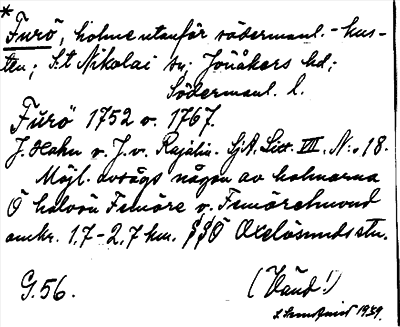 * Furö, holme utanför södermanl.-kus-
ten; S:t Nikolai sn; Jönåkers hd;
Södermanl. l.
Furö 1752 o. 1767.
J. Hahn o. J. v. Rajalin. SjA. Litt. VII. N:o 18.
Möjl. avsågs någon av holmarna
Ö halvön Femöre o. Femörehuvud
omkr. 1,7-2,7 km. SSÖ Oxelösunds stn.
G. 56. (Vänd!)
1939.